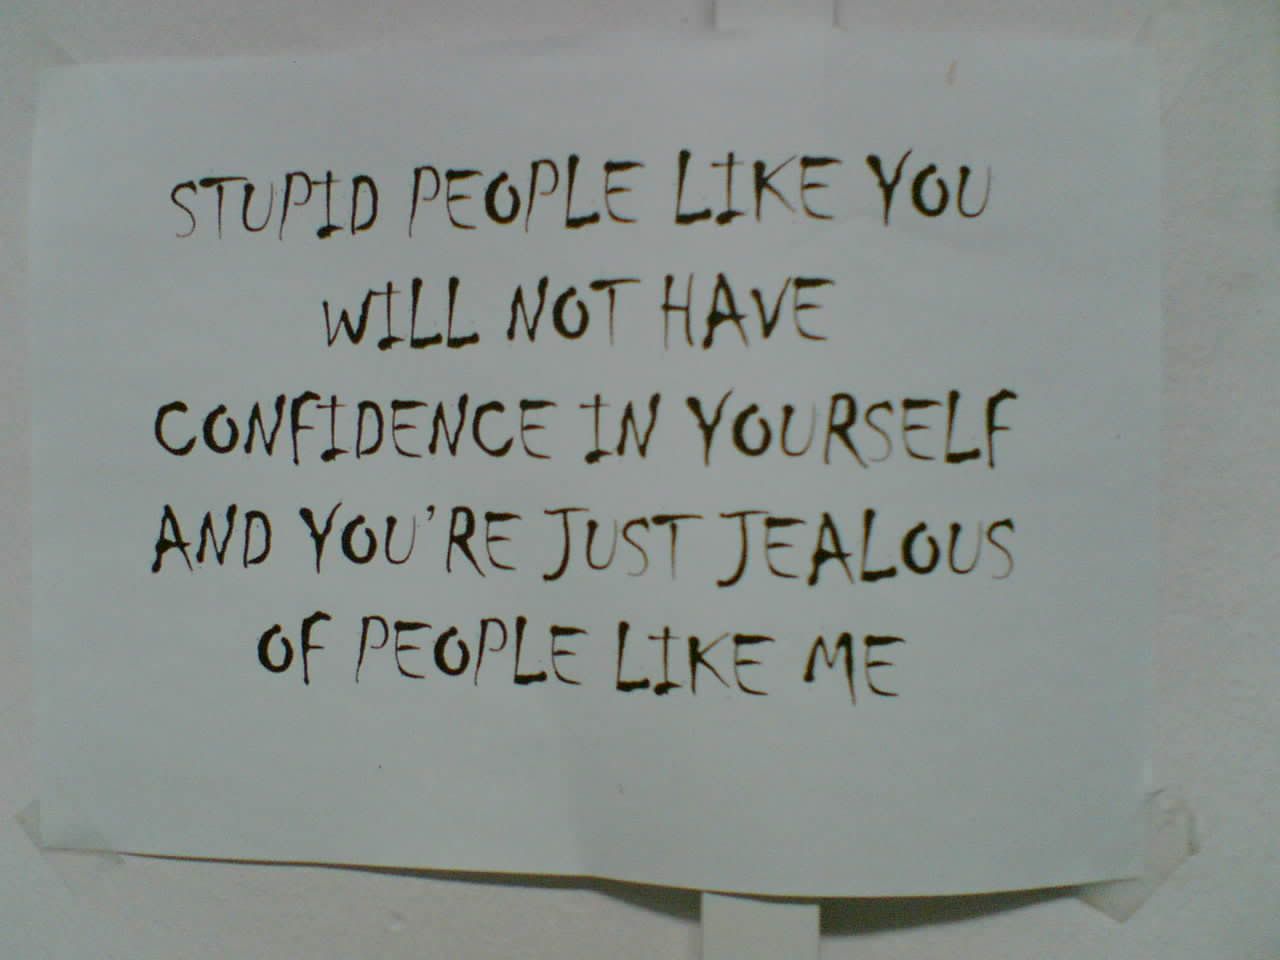 STUPID PEOPLE LIKE YOU
WILL NOT HAVE
CONFIDENCE IN YOURSELF
AND YOU'RE JUST JEALOUS
OF PEOPLE LIKE ME